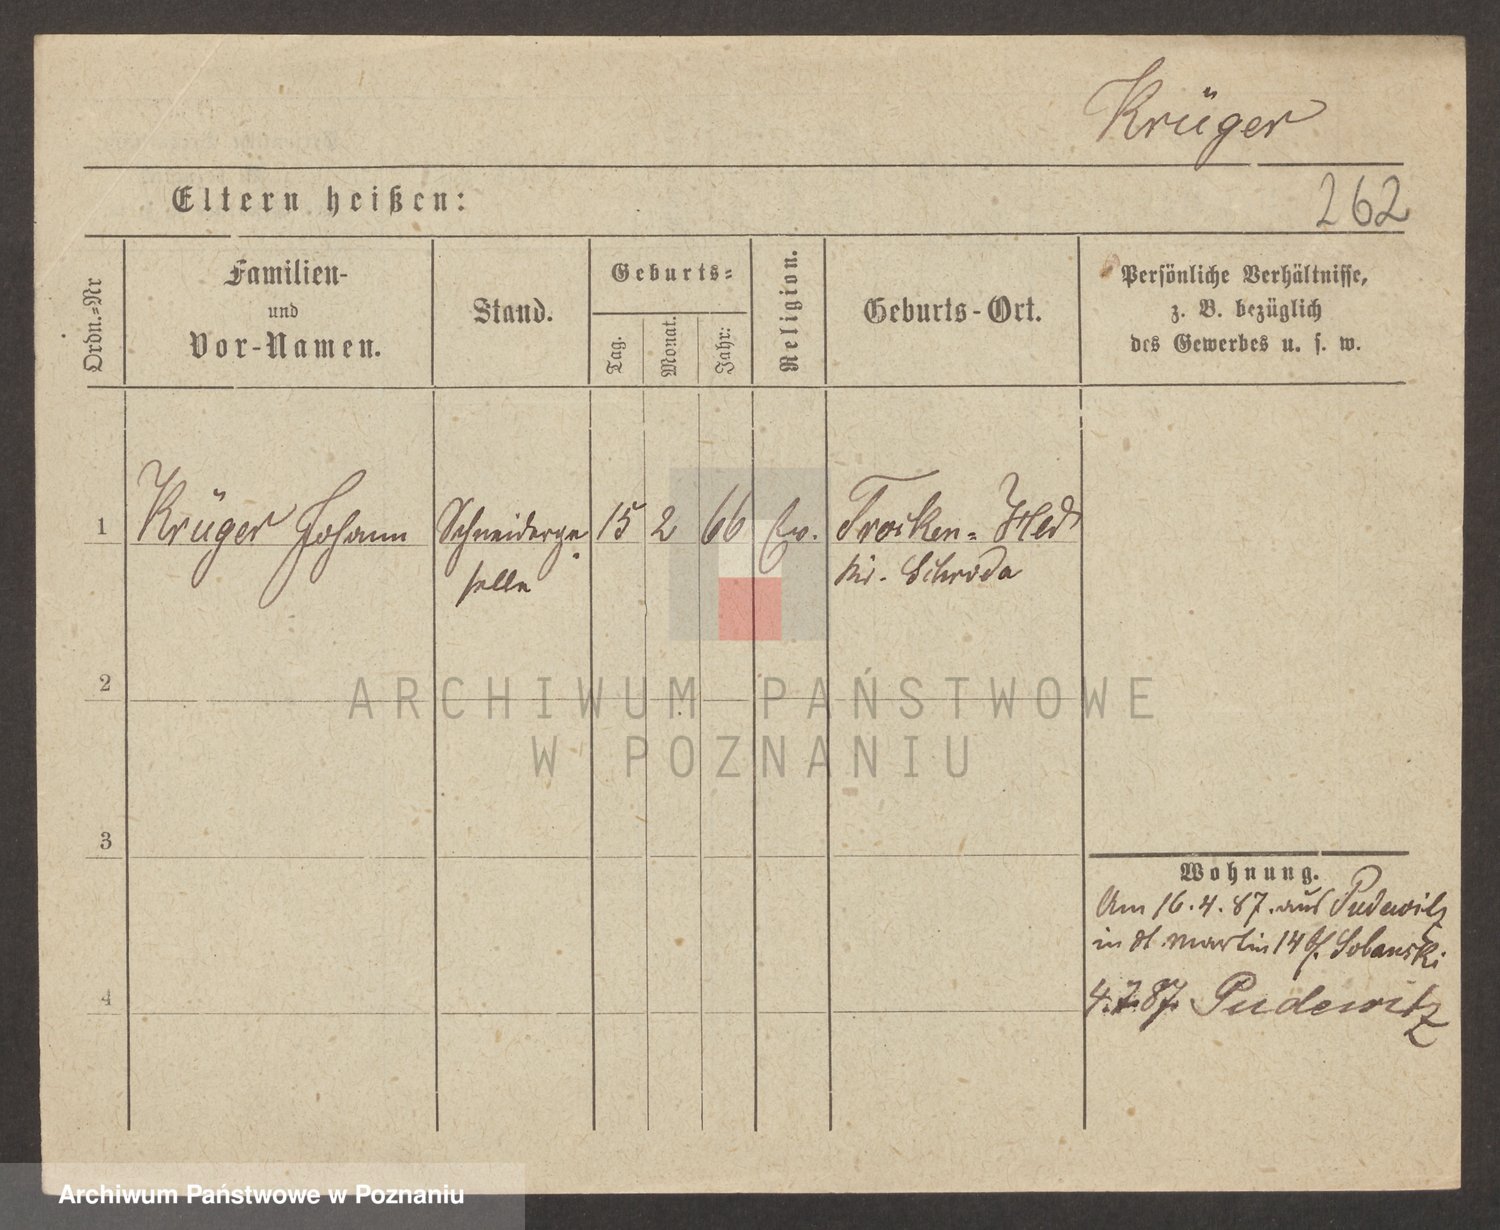 Krüger
Eltern heißen:
262
Ordn.=Nr
Familien-
und
Vor-Namen.
Stand.
Geburts=
Tag.
Monat.
Jahr:
Religion.
Geburts-Ort.
Persönliche Verhältnisse,
z. B. bezüglich
des Gewerbes u. s. w.
1
Krüger Johann
Schneiderge
selle
15
2
66
Ev.
Trocken=
Kr. Schroda
2
3
4
Wohnung.
Am 16.4.87. aus Pudewitz
in St Martin 14 b/ Sobanski
4.7.87. Pudewitz
ARCHIWUM PAŃSTWOWE
W POZNANIU
Archiwum Państwowe w Poznaniu